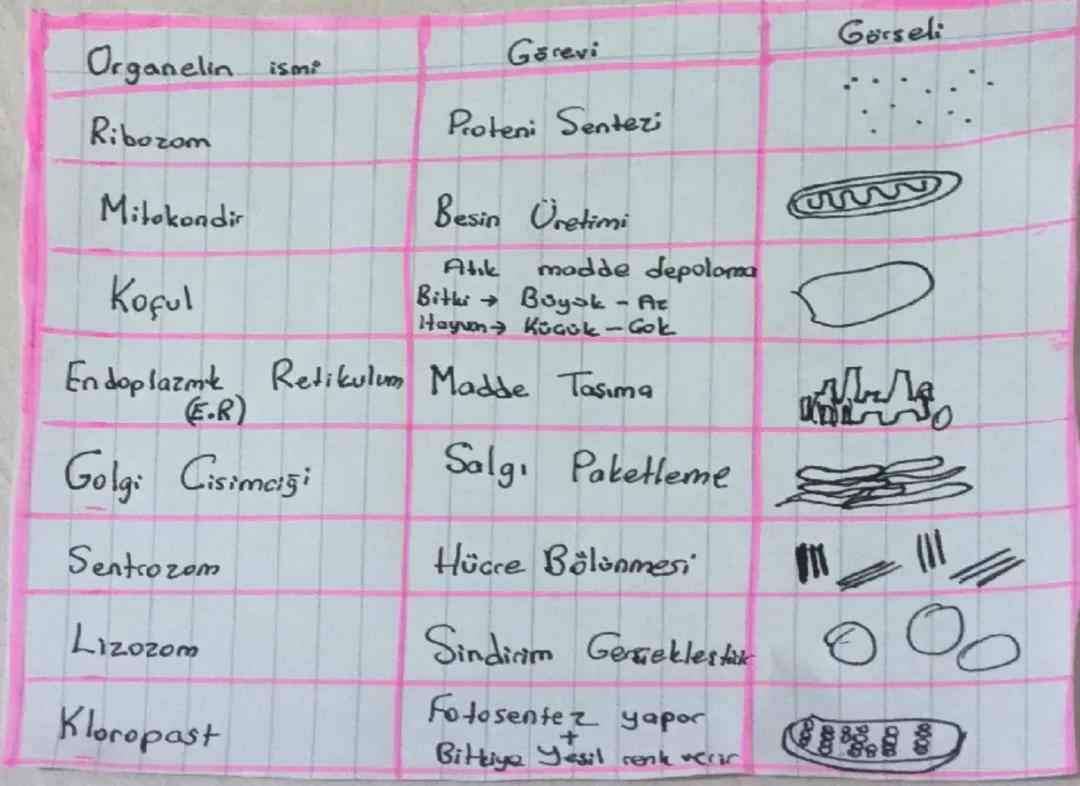 Organelin ismi
Görevi
Görseli
Ribozom
Proteni Sentezi
Mitokondir
Besin Üretimi
Koful
Atık madde depolama
Bitki → Büyük - Az
Hayvan → Küçük - Çok
Endoplazmik Retikulum
(E.R)
Madde Taşıma
Golgi Cisimciği
Salgı Paketleme
Sentrozom
Hücre Bölünmesi
Lizozom
Sindirim Gerçekleştirir
Kloropast
Fotosentez yapar
+
Bitkiye Yeşil renk verir